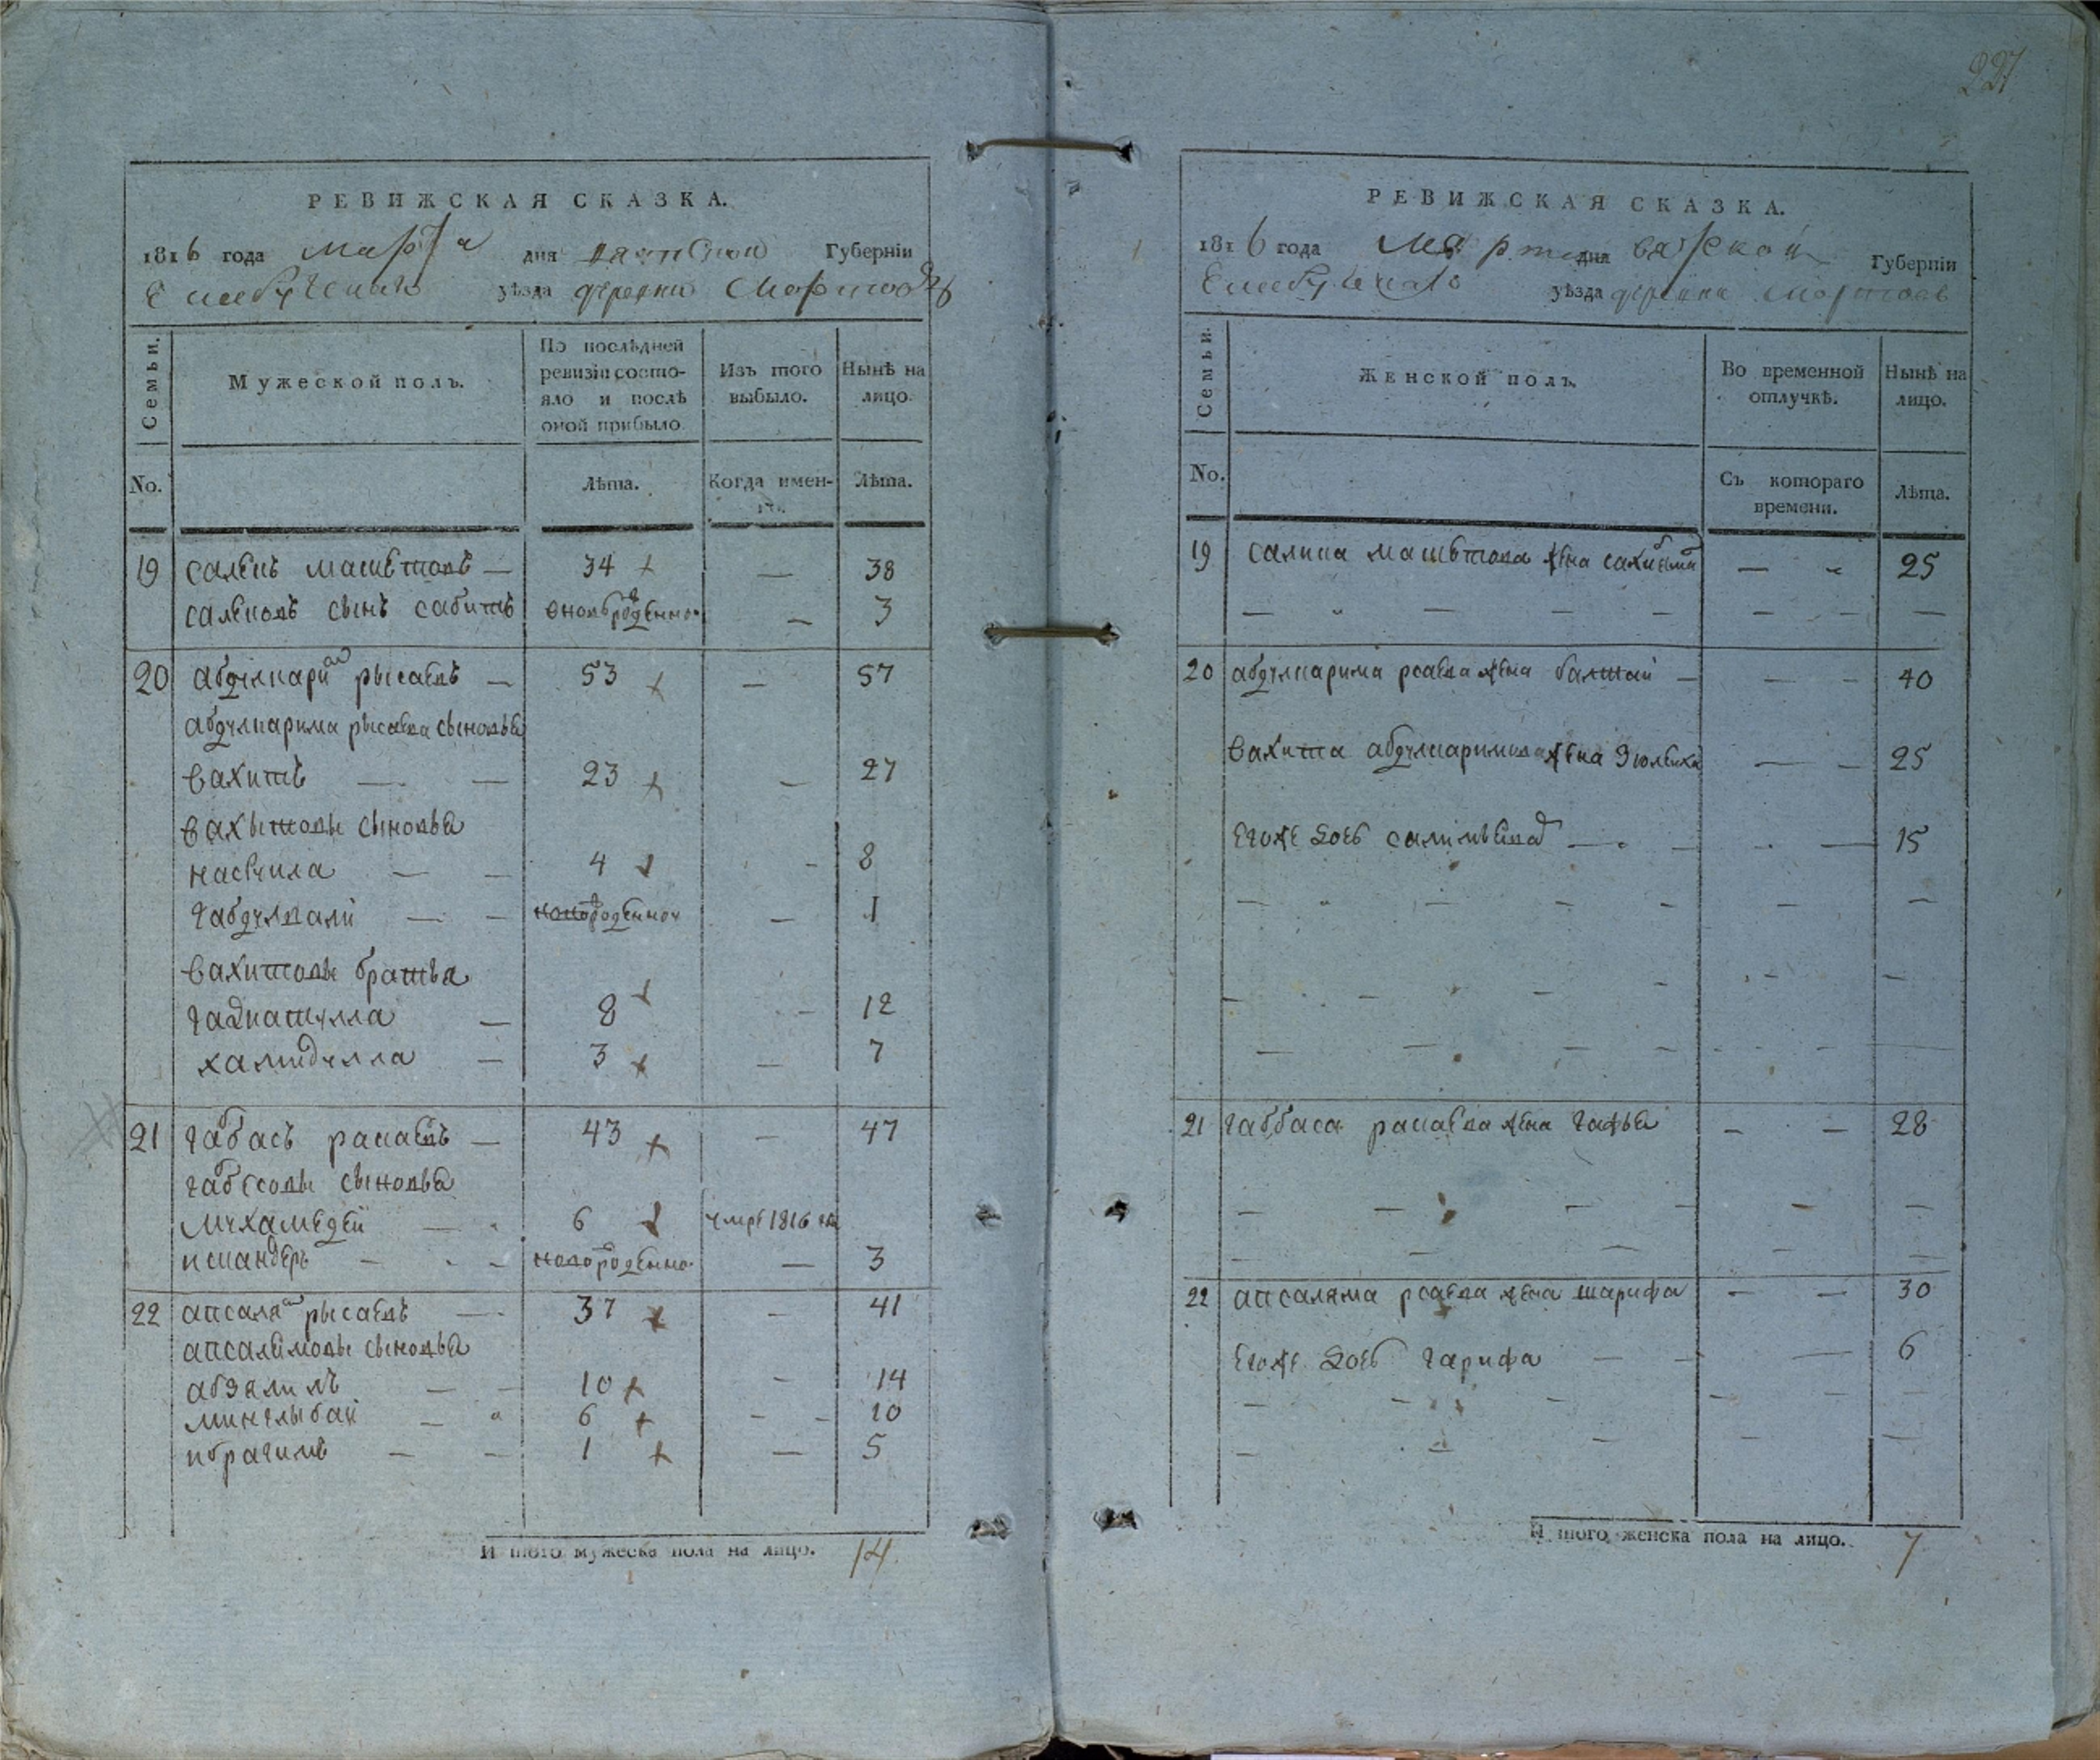 РЕВИЖСКАЯ СКАЗКА.
1816 года марта дня вятской Губерніи
Елабужскаго уѣзда деревни
Семьи.
Мужеской полъ.
По послѣдней ревизіи состояло и послѣ оной прибыло.
Изъ того выбыло.
Нынѣ на лицо.
No.
Лѣта.
Когда именно.
Лѣта.
19 салекъ маметовъ — 34 — 38
салековъ сынъ сабитъ вновьрожденно — 3
20 абдулкаримъ рысаевъ — 53 — 57
абдулкарима рысаева сыновья
вахитъ — — 23 — 27
вахытовы сыновья
насвула — — 4 - 8
габдулвали — — новорожденно — 1
вахитовы братья
гадиатулла — 8 - 12
хамидулла — 3 — 7
21 габасъ рапаевъ — 43 — 47
габсовы сыновья
мухамедей — 6 умре 1816 го
искандеръ — новорожденно — 3
22 апсалямъ рысаевъ — 37 - 41
апсалямовы сыновья
абзялилъ — — 10 - 14
минглыбай — 6 - - 10
ибрагимъ — — 1 — 5
И того мужеска пола на лицо. 14
227
РЕВИЖСКАЯ СКАЗКА.
1816 года марта дня вятской Губерніи
Елабужскаго уѣзда деревни
Семьи.
Женской полъ.
Во временной отлучкѣ.
Нынѣ на лицо.
No.
Съ котораго времени.
Лѣта.
19 маметова жена — 25
20 абдулкарима рсаева жена баттай — — - 40
вахита абдулкаримова жена Зюлвиха — - 25
егоже дочь — 15
21 габбаса рапаева жена гафья - — 28
22 апсаляма рсаева жена шарифа - — 30
егоже дочь гарифа — — 6
И того женска пола на лицо. 7